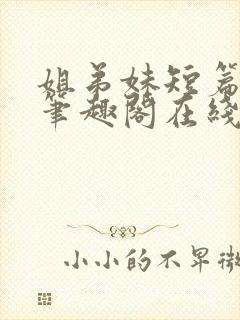 姐弟妹短篇
笔趣阁在线
小小的不早微